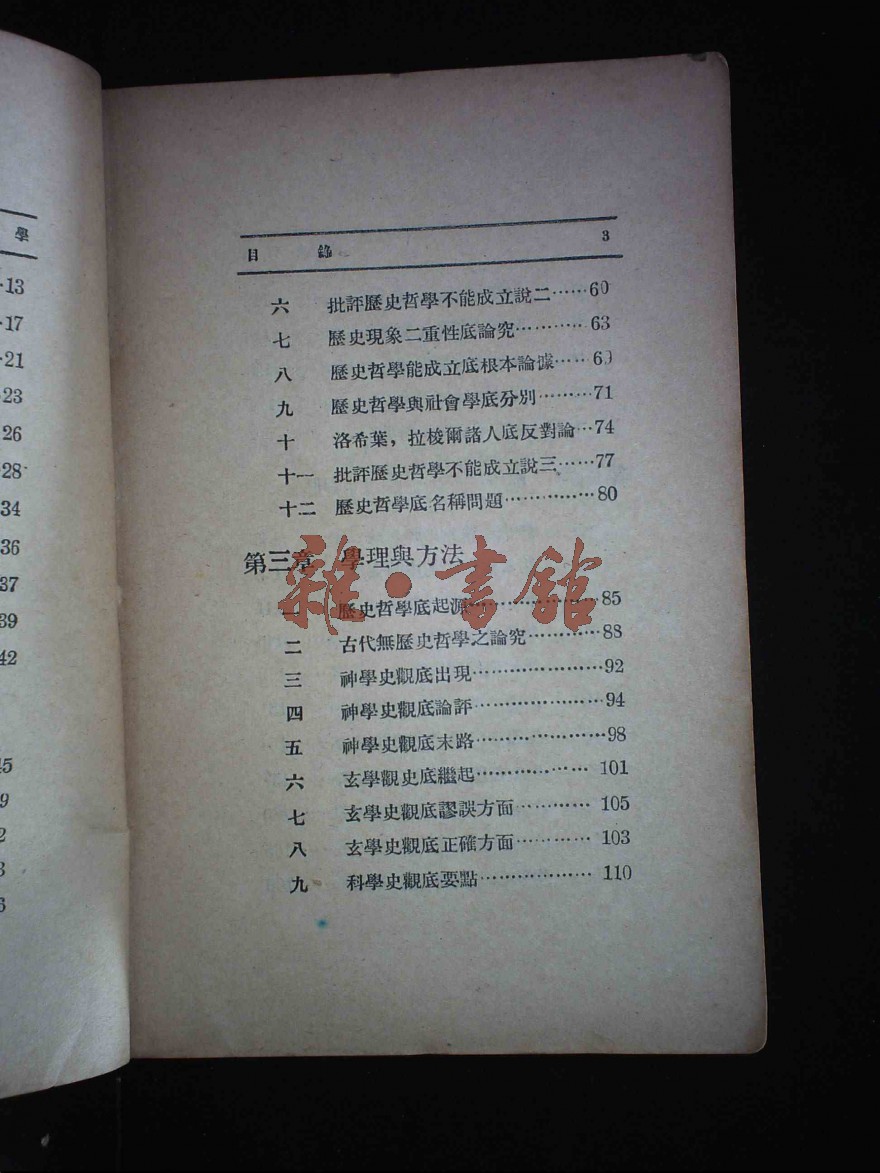 學
13
17
21
23
26
28
34
36
37
39
42
目 錄 3
六 批評歷史哲學不能成立說二……60
七 歷史現象二重性底論究…………63
八 歷史哲學能成立底根本論據……69
九 歷史哲學與社會學底分別………71
十 洛希葉，拉梭爾諸人底反對論…74
十一 批評歷史哲學不能成立說三……77
十二 歷史哲學底名稱問題……………80
第三章 學理與方法
一 歷史哲學底起源…………………85
二 古代無歷史哲學之論究…………88
三 神學史觀底出現…………………92
四 神學史觀底論評…………………94
五 神學史觀底末路…………………98
六 玄學觀史底繼起……………… 101
七 玄學史觀底謬誤方面………… 105
八 玄學史觀底正確方面………… 103
九 科學史觀底要點……………… 110
雜·書館